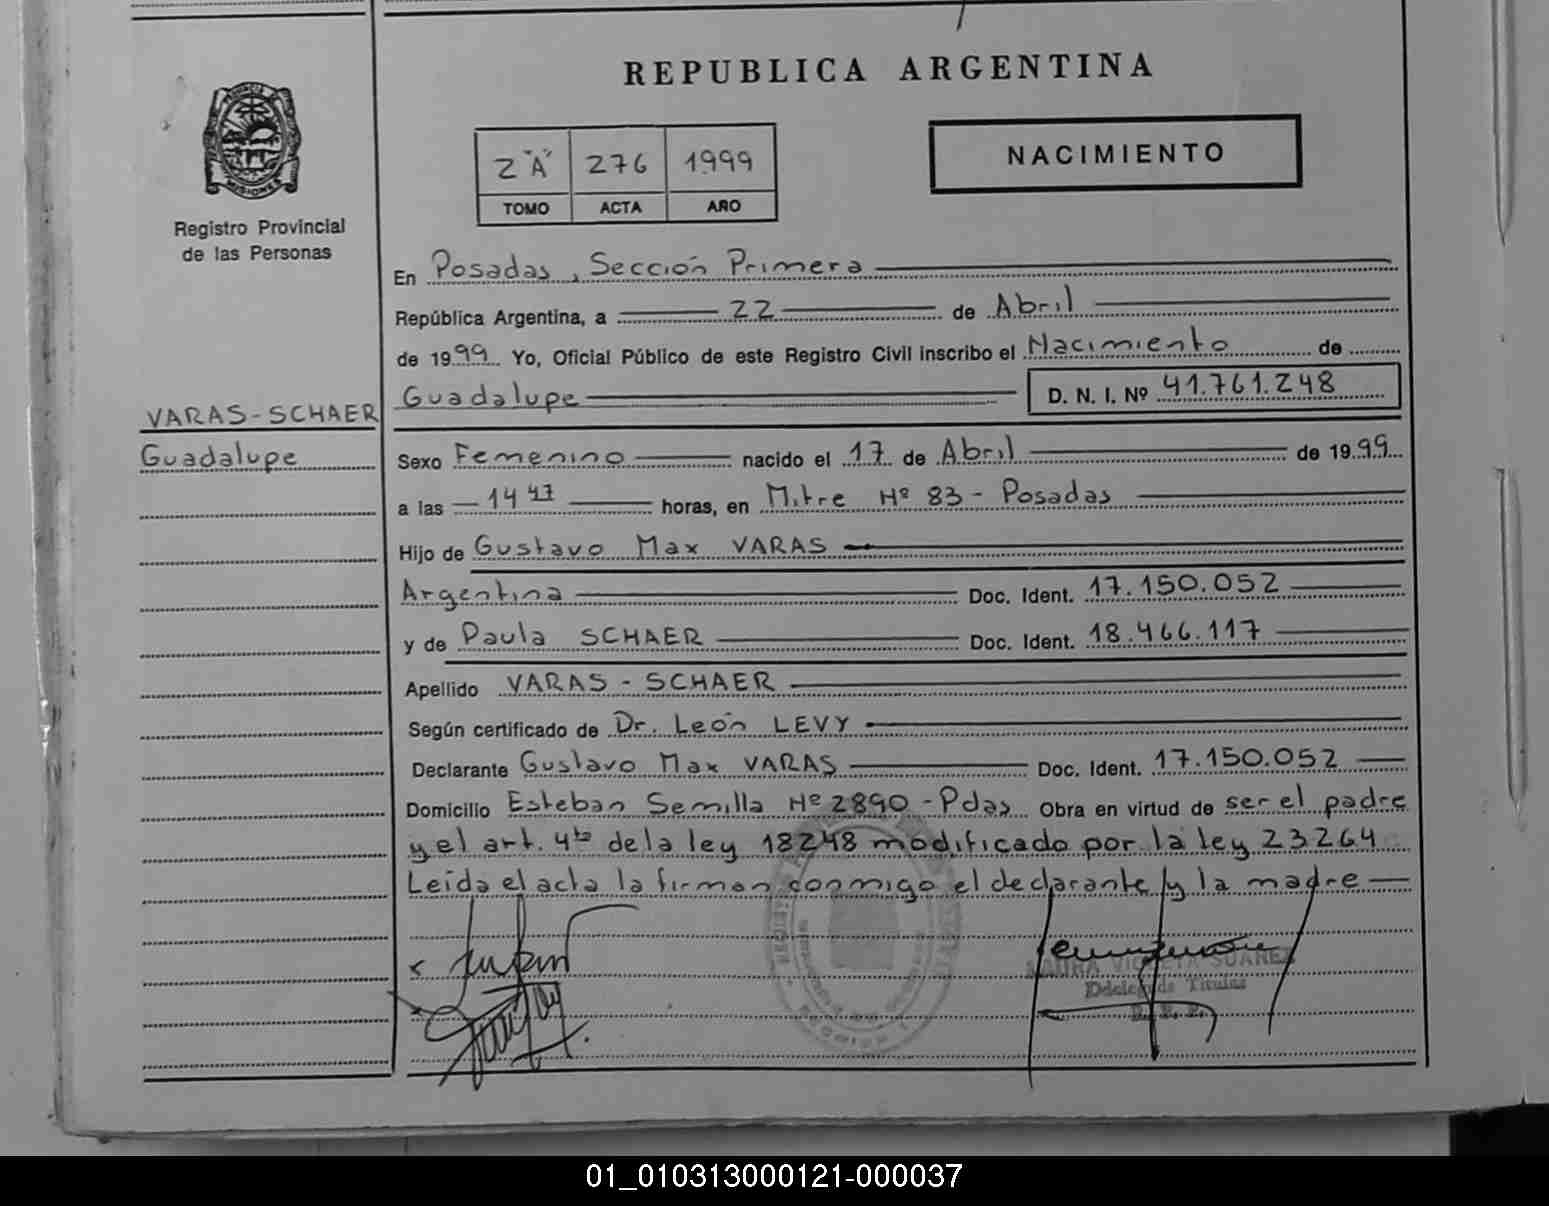 REPUBLICA ARGENTINA
PROVINCIA DE
MISIONES
Registro Provincial
de las Personas
2 "A" 276 1999
TOMO ACTA AÑO
NACIMIENTO
En Posadas, Sección Primera
República Argentina, a 22 de Abril
de 1999 Yo, Oficial Público de este Registro Civil inscribo el Nacimiento de
Guadalupe D. N. I. Nº 41.761.248
VARAS-SCHAER
Guadalupe
Sexo Femenino nacido el 17 de Abril de 1999
a las 14 47 horas, en Mitre Nº 83 - Posadas
Hijo de Gustavo Max VARAS
Argentina Doc. Ident. 17.150.052
y de Paula SCHAER Doc. Ident. 18.466.117
Apellido VARAS - SCHAER
Según certificado de Dr. León LEVY
Declarante Gustavo Max VARAS Doc. Ident. 17.150.052
Domicilio Esteban Semilla Nº 2890 - Pdas Obra en virtud de ser el padre
y el art. 4to de la ley 18248 modificado por la ley 23264
Leída el acta la firman conmigo el declarante y la madre
SUAREZ
Titular
01_010313000121-000037